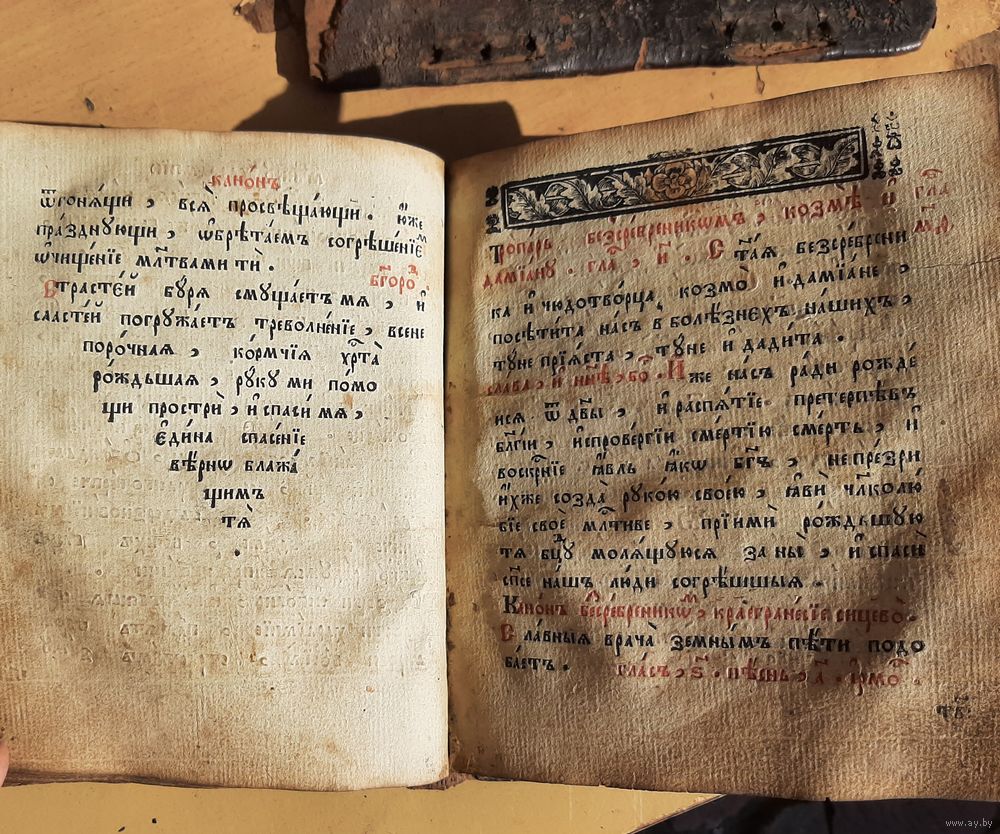 канѡ́нъ
ѿгоня́щи, вся̀ просвѣща́ющи. ю҆́же
пра́зднующи, ѡ҆брѣта́емъ согрѣше́нїемъ
ѡ҆чище́нїе мл҃твами тѝ.
бг҃оро́
Страсте́й бу́ря смуща́етъ мя, и҆
сласте́й погружа́етъ треволне́нїе, всене
поро́чная, ко́рмчїя хр҃та̀
ро́ждьшая, ру́ку ми помо
щи прострѝ, и҆ спаси́ мя,
є҆ди́на спасе́нїе
вѣ́рнѡ блажа́
щимъ
тя̀
Тропа́рь безсре́вреникѡмъ, козмѣ̀ и҆
дамїа́ну. гла́, и҃. Ст҃а́я безсре́брени
ка и҆ чюдотво́рца, козмо̀ и҆ дамїа́не,
посѣти́та на́съ в болѣ́знехъ на́шихъ,
ту́не прїя́ста, ту́не и҆ дади́та.
сла́ва, и҆ ны́нѣ, бо҃. И҆́же на́съ ра́ди рожде́
ися ѿ дв҃ы, и҆ распя́тїе претерпѣ́въ
бл҃гі́и, и҆спрове́ргїи сме́ртїю сме́рть, и҆
воскр҃нїе ꙗ҆́вль ꙗ҆́кѡ бг҃ъ, не пре́зри
и҆́хже созда̀ руко́ю свое́ю, ꙗ҆вѝ чл҃колю́
бїе своѐ мл҃тиве, прїимѝ ро́ждьшую
тя бц҃у моля́щуюся за ны̀, и҆ спасѝ
сп҃се на́шъ лю́ди согрѣ́шшыя.
Кано́нъ бесре́бреникѡ, краегране́сїе си́цево.
Сла́вныя врача̀ земны́мъ пѣ́ти подо
ба́етъ. гла́съ, ѕ҃. пѣ́снь, а҃. і҆рмо́